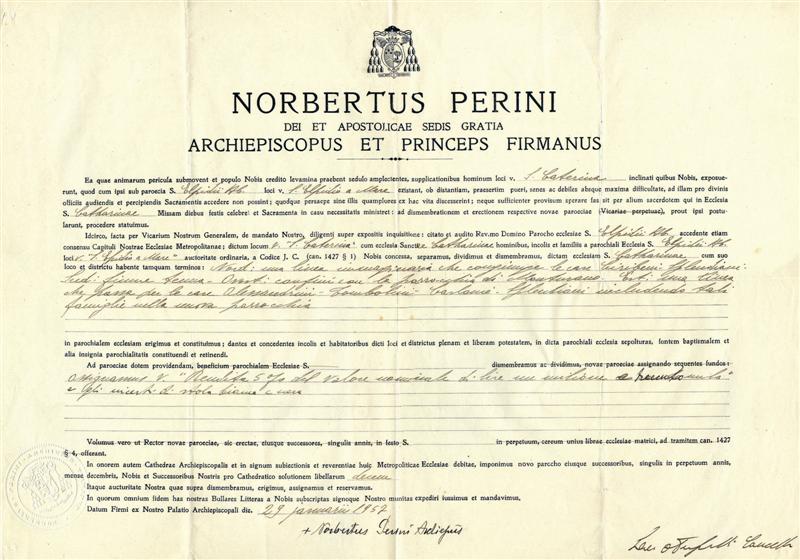 NORBERTUS PERINI
DEI ET APOSTOLICAE SEDIS GRATIA
ARCHIEPISCOPUS ET PRINCEPS FIRMANUS
Ea quae animarum pericula submovent et populo Nobis credito levamina praebent sedulo amplectentes, supplicationibus hominum loci v. S. Caterina inclinati quibus Nobis, exposue-
runt, quod cum ipsi sub paroecia S. Elpidii Ab. loci v. S. Elpidio a Mare existant, ob distantiam, praesertim pueri, senes ac debiles absque maxima difficultate, ad illam pro divinis
officiis audiendis et percipiendis Sacramentis accedere non possint; quodque persaepe sine illis quamplures ex hac vita discesserint; neque sufficienter provisum sperare fas sit per alium sacerdotem qui in Ecclesia
S. Catharinae Missam diebus festis celebret et Sacramenta in casu necessitatis ministret: ad dismembrationem et erectionem respective novae paroeciae (Vicariae perpetuae), prout ipsi postu-
larunt, procedere statuimus.
Idcirco, facta per Vicarium Nostrum Generalem, de mandato Nostro, diligenti super expositis inquisitione: citato et audito Rev.mo Domino Parocho Ecclesiae S. Elpidii Ab. accedente etiam
consensu Capituli Nostrae Ecclesiae Metropolitanae; dictum locum v. "S. Caterina" cum ecclesia Sanctae Catharinae hominibus, incolis et familiis a parochiali Ecclesia S. Elpidii Ab.
loci v. "S. Elpidio a Mare" auctoritate ordinaria, a Codice J. C. (can. 1427 § 1) Nobis concessa, separamus, dividimus et dismembramus, dictam ecclesiam S. Catharinae cum suo
loco et districtu habente tamquam terminos: Nord: una linea immaginaria che comprende le case
Sud: fiume Tenna - Ovest: confini con la parrocchia di - Est: una linea
che passa per le case Alessandrini - Tombolini - includendo tali
famiglie nella nuova parrocchia
in parochialem ecclesiam erigimus et constituimus; dantes et concedentes incolis et habitatoribus dicti loci et districtus plenam et liberam potestatem, in dicta parochiali ecclesia sepolturas, fontem baptismalem et
alia insignia parochialitatis constituendi et retinendi.
Ad paroeciae dotem providendam, beneficium parochialem Ecclesiae S. dismembramus ac dividimus, novae paroeciae assignando sequentes fundos:
assignamus v. "Rendita 5% del valore nominale di lire un milione e
e gli incerti di stola bianca e nera
Volumus vero ut Rector novae paroeciae, sic erectae, eiusque successores, singulis annis, in festo S. in perpetuum, cereum unius librae ecclesiae matrici, ad tramitem can. 1427
§ 4, offerant.
In onorem autem Cathedrae Archiepiscopalis et in signum subiectionis et reverentiae huic Metropoliticae Ecclesiae debitae, imponimus novo parocho eiusque successoribus, singulis in perpetuum annis,
mense decembris, Nobis et Successoribus Nostris pro Cathedratico solutionem libellarum decem
Itaque auctoritate Nostra quae supra dismembramus, erigimus, assignamus et reservamus.
In quorum omnium fidem has nostras Bullares Litteras a Nobis subscriptas signoque Nostro munitas expediri iussimus et mandavimus.
Datum Firmi ex Nostro Palatio Archiepiscopali die. 29 januarii 1957
+ Norbertus Perini Archiepus